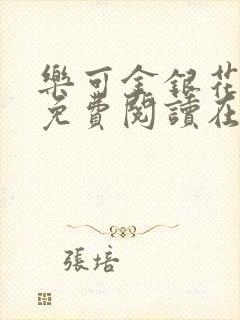 樂可金銀花
免費閱讀在
張培